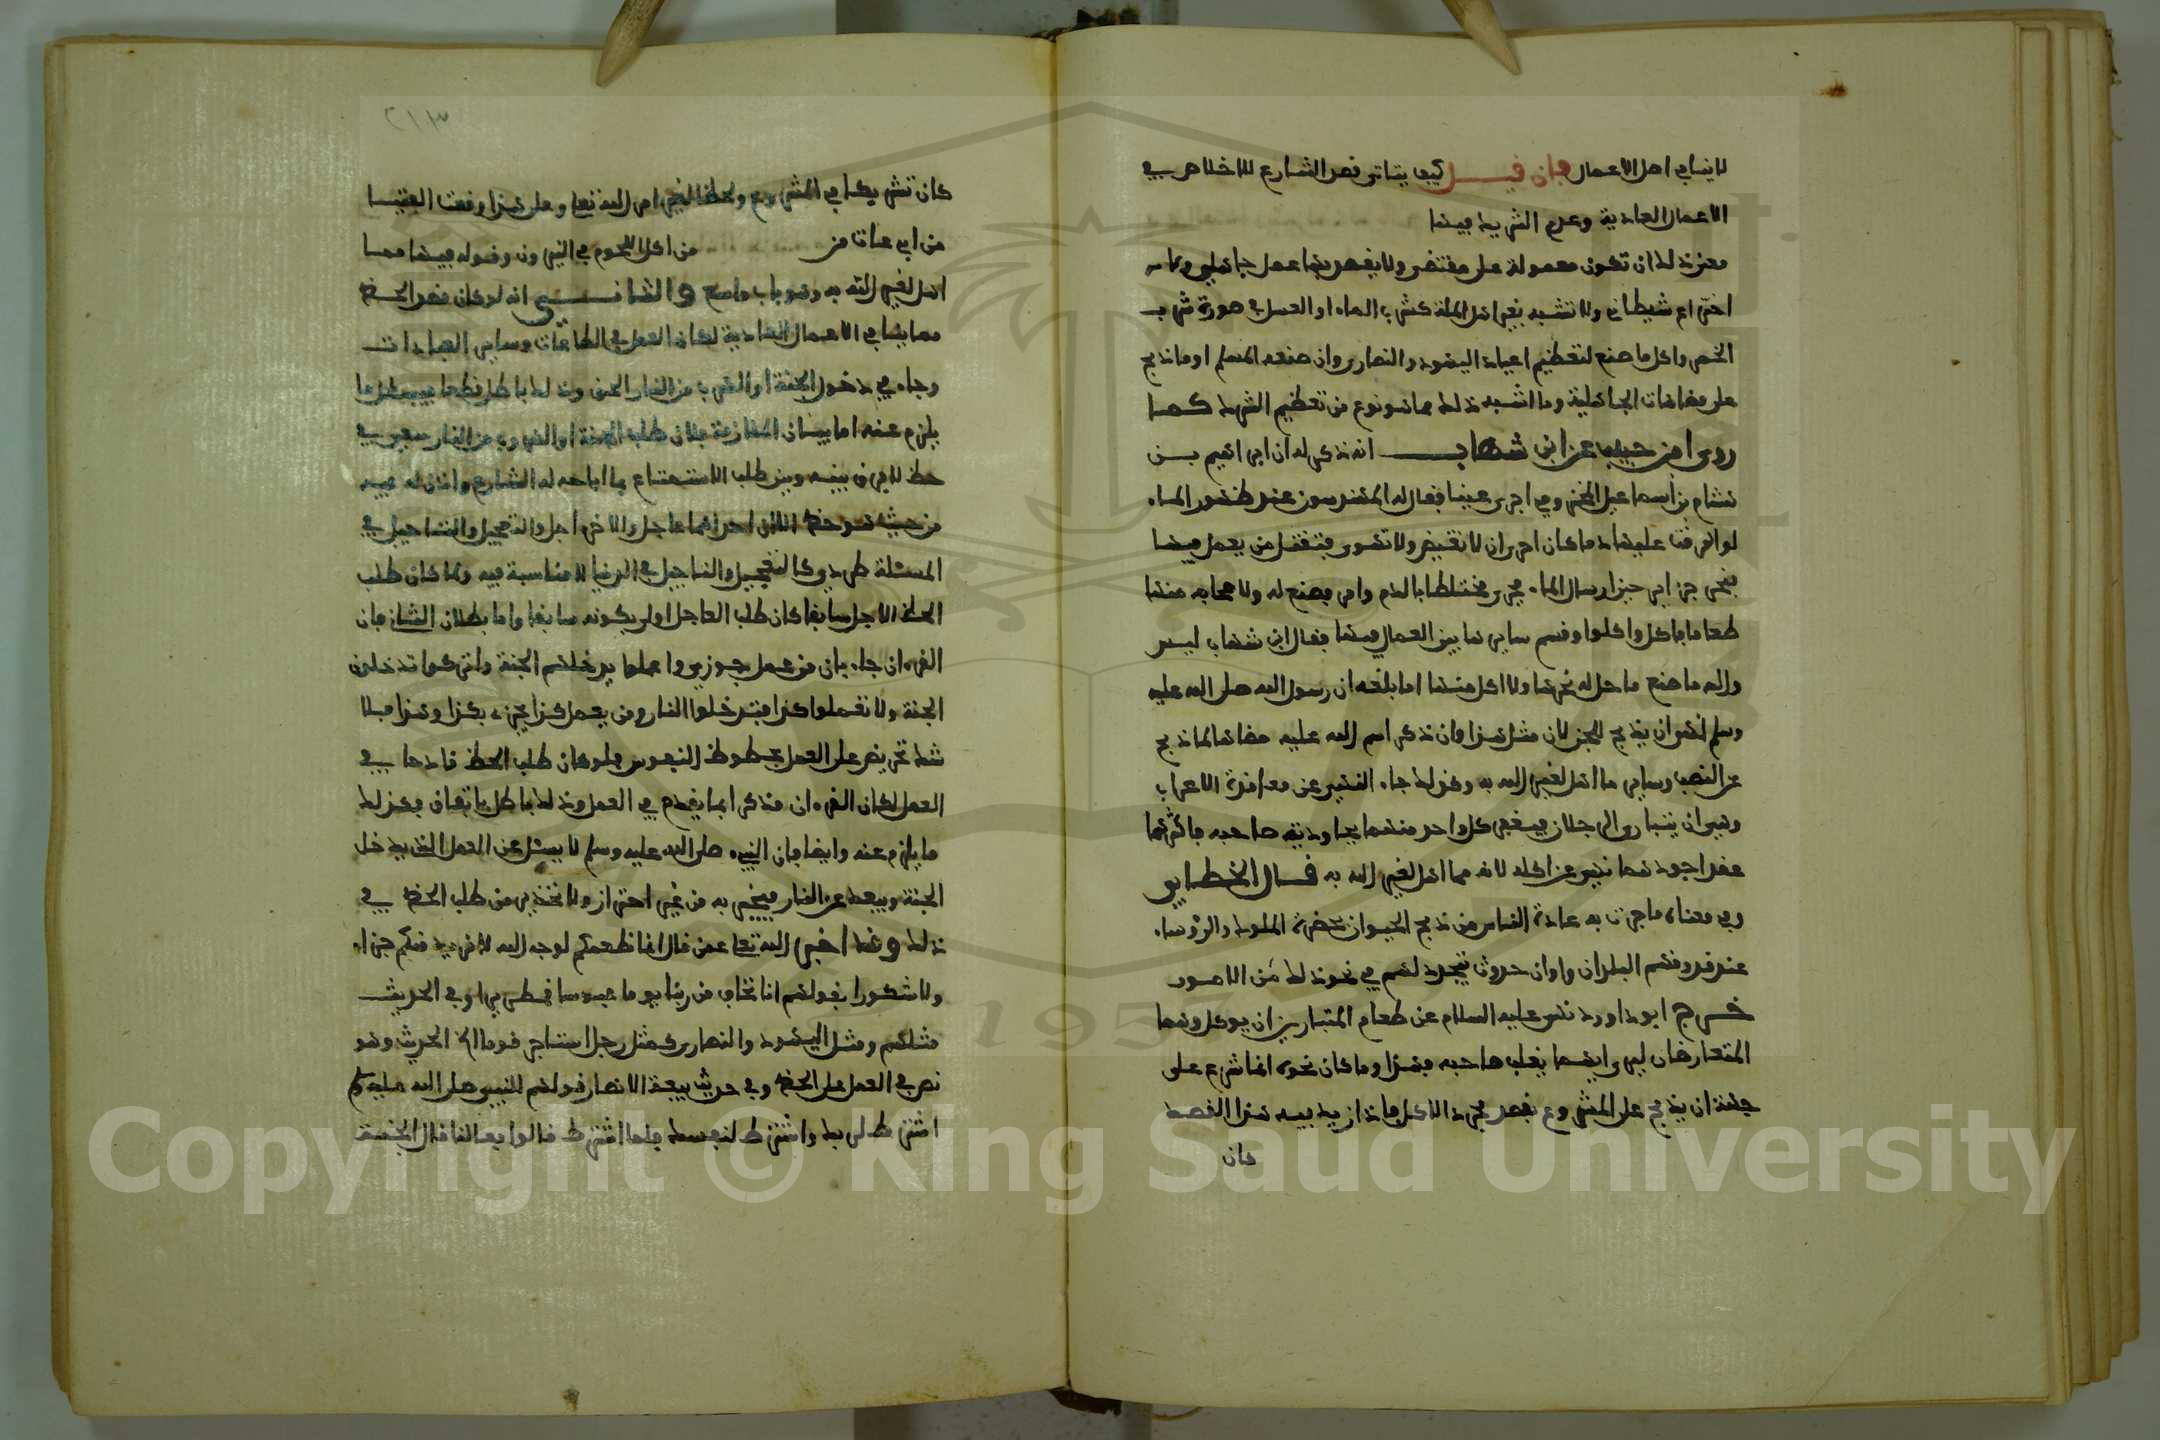 لا ينافي اصل الاعمال فان قيل كيف يتاتى قصد الشارع للاخلاص في
الاعمال العادية وعدم التشريك فيها
معنى ذلك ان تكون معمولة على مقتضى ولا يقصد بها عمل جاهلي ولا
اختراع شيطاني ولا تشبه بغير اهل الملة كشرب الماء او العسل في صورة شرب
الخمر واكل ما صنع لتعظيم اعياد اليهود والنصارى وان صنعه المسلم او ما ذبح
على مضاهات الجاهلية وما اشبه ذلك مما هو نوع من تعظيم الشرك كما
روى ابن حبيب عن ابن شهاب انه ذكر له ان ابراهيم بن
هشام بن اسماعيل المخزومي اجرى عينا فقال له المهندسون عند ظهور الماء
لو اهرقت عليها دما كان احرى ان لا تغيض ولا تهور فتقتل من يعمل فيها
فنحر جزائر حين ارسال الماء فجرى مختلطا بالدم وامر فصنع له ولاصحابه منها
طعاما فاكل واكلوا وقسم سائرها بين العمال فيها فقال ابن شهاب ليس
والله ما صنع ما حل له نحرها ولا اكل منها اما بلغه ان رسول الله صلى الله عليه
وسلم نهى ان يذبح للجن لان مثل هذا وان ذكر اسم الله عليه مضاها لما ذبح
على النصب وسائر ما اهل لغير الله به وكذلك جاء النهي عن معاقرة الاعراب
وهي ان يتبارى الرجلان فيعقر كل واحد منهما يجاود به صاحبه فاكثرهما
عقرا اجودهما نهي عن اكله لانه مما اهل لغير الله به قال الخطابي
وفي معناه ما جرت به عادة الناس من ذبح الحيوان بحضرة الملوك والرؤساء
عند قدومهم البلدان واوان حدوث يتجدد لهم في نحو ذلك من الامور
خرج ابو داود نهى عليه السلام عن طعام المتباريين ان يوكل وهما
المتعارضان ليرى ايهما يغلب صاحبه فهذا وما كان نحوه انما شرع على
جهة ان يذبح على المشروع بقصد مجرد الاكل فاذا زيد فيه هذا القصد
كان
٢١٣
كان تشريكا في المشروع ولحظا لغير امر الله تعلى وعلى هذا وقعت الفتيا
من ابن عتاب من اكل اللحوم في النيروز وقوله فيها مما
اهل لغير الله به وهو باب واسع والثاني انه لو كان قصد الحظ
مما ينافي الاعمال العادية لكان العمل في الطاعات وسائر العبادات
رجاء في دخول الجنة او الهرب من النار الحق وذلك باطل قطعا فيبطل ما
يلزم عنه اما بيان الملازمة فلان طلب الجنة او الهروب من النار سعي في
حظ لا فرق بينه وبين طلب الاستمتاع بما اباحه له الشارع واذن له فيه
من حيث هو حظ الا ان احدهما عاجل والاخر اجل والتعجيل والتاجيل في
المسئلة طردي كالتعجيل والتاجيل في الدنيا لا مناسبة فيه ولما كان طلب
الحظ الاجل سايغا كان طلب العاجل اولى بكونه سايغا واما بطلان الثاني فان
القرءان جاء بان من عمل جوزي واعملوا يدخلكم الجنة واتركوا تدخلون
الجنة ولا تعملوا كذا فتدخلوا النار ومن يعمل كذا يجز بكذا وهذا بلا
شك تحريض على العمل بحظوظ النفوس فلو كان طلب الحظ قادحا في
العمل لكان القرءان مذكرا بما يقدح في العمل وذلك باطل باتفاق فكذلك
ما يلزم عنه وايضا فان النبيء صلى الله عليه وسلم كان يسئل عن العمل الذي يدخل
الجنة ويبعد عن النار فيخبر به من غير احتراز ولا تحذير من طلب الحظ في
ذلك وقد اخبر الله تعلى عمن قال انما نطعمكم لوجه الله لا نريد منكم جزاء
ولا شكورا بقولهم انا نخاف من ربنا يوما عبوسا قمطريرا وفي الحديث
مثلكم ومثل اليهود والنصارى كمثل رجل استاجر قوما الخ الحديث وهو
نص في العمل على الحظ وفي حديث بيعة الانصار قولهم للنبي صلى الله عليه وسلم
اشترط لربك واشترط لنفسك فلما اشترط قالوا فما لنا قال الجنة
Copyright © King Saud University
195